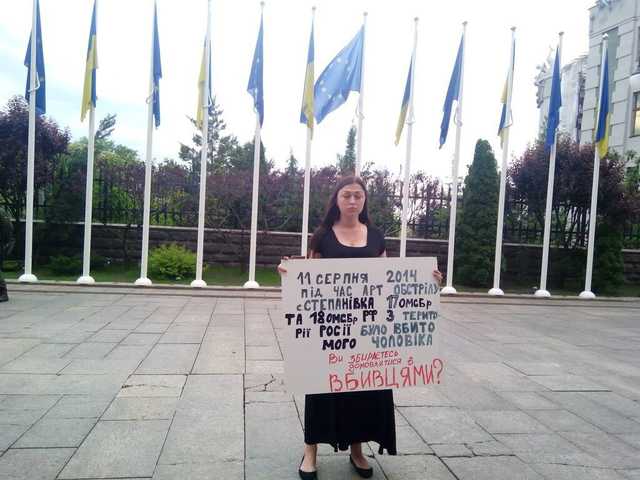 11 СЕРПНЯ 2014
ПІД ЧАС АРТ ОБСТРІЛУ
с СТЕПАНІВКА 17 ОМСБР
ТА 18 ОМСБР РФ З ТЕРИТО
РІЇ РОСІЇ БУЛО ВБИТО
МОГО ЧОЛОВІКА
Ви збираєтесь
домовлятися з
ВБИВЦЯМИ?